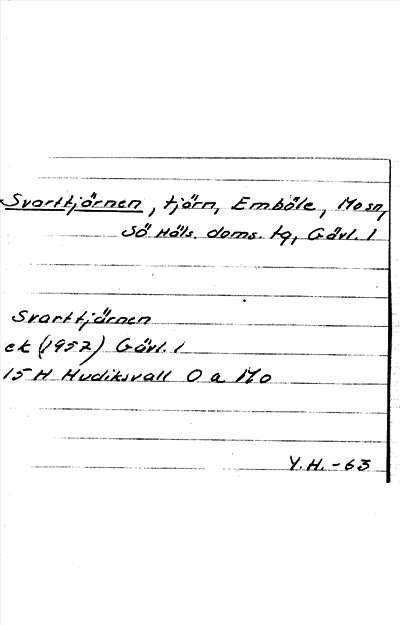 Svarttjärnen, tjärn, Emböle, Mosn,
Sö Häls. doms. tg, Gävl. l
Svarttjärnen
ek (1957) Gävl. l
15 H Hudiksvall O a Mo
Y.H. -63